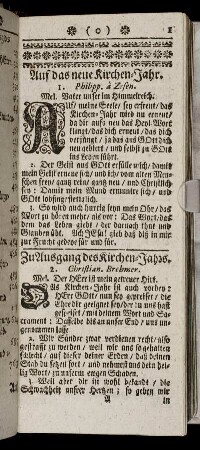 ( o ) 1
Auf das neue Kirchen-Jahr.
1. Philipp. à Zesen.
Mel. Vater unser im Himmelreich.
Auf/ meine Seele/ sey erfreut/ das
Kirchen-Jahr wird nu erneut/
da dir aufs neu das Heyl
verjüngt/ ja das aus GOtt dich
neu gebiert/ und selbst zu GOtt
ins leben führt.
2. Der Geist aus GOtt erfülle mich/ damit
mein Geist erneue sich/ und ich/ vom alten Men-
schen frey/ ganz rein/ ganz neu/ und Christlich
sey: Damit mein Mund ermuntre sich/ und
GOtt lobsinge stetiglich.
3. So wird mich hurtig seyn mein Ohr/ das
Wort zu hören mehr/ als vor: Das Wort/ das
dem das Leben giebt/ der darnach thut und
Glauben übt. Ach JEsu! gieb daß diß in mir
zur Frucht gedeye für und für.
Zu Ausgang des Kirchen-Jahrs.
2. Christian. Brehmer.
Mel. Der HErr ist mein getreuer Hirt.
Das Kirchen-Jahr ist auch vorbey:
HErr GOtt/ nun sey gepreiset/ die
Ehre dir geeignet sey/ der du uns hast
gespeiset/ mit deinem Wort und Sa-
crament: Dasselbe bis an unser End/ uns un-
genommen lasse.
2. Wir Sünder zwar verdienen recht/ also
gestraft zu werden/ weil wir uns so gehalten
schlecht/ auf dieser deiner Erden/ daß deinen
Stab du setzest fort/ und nehmest uns dein hei-
lig Wort/ zu unserm ewgen Schaden.
3. Weil aber dir ist wohl bekandt/ die
Schwachheit unsrer Hertzen; so geben wir
A in